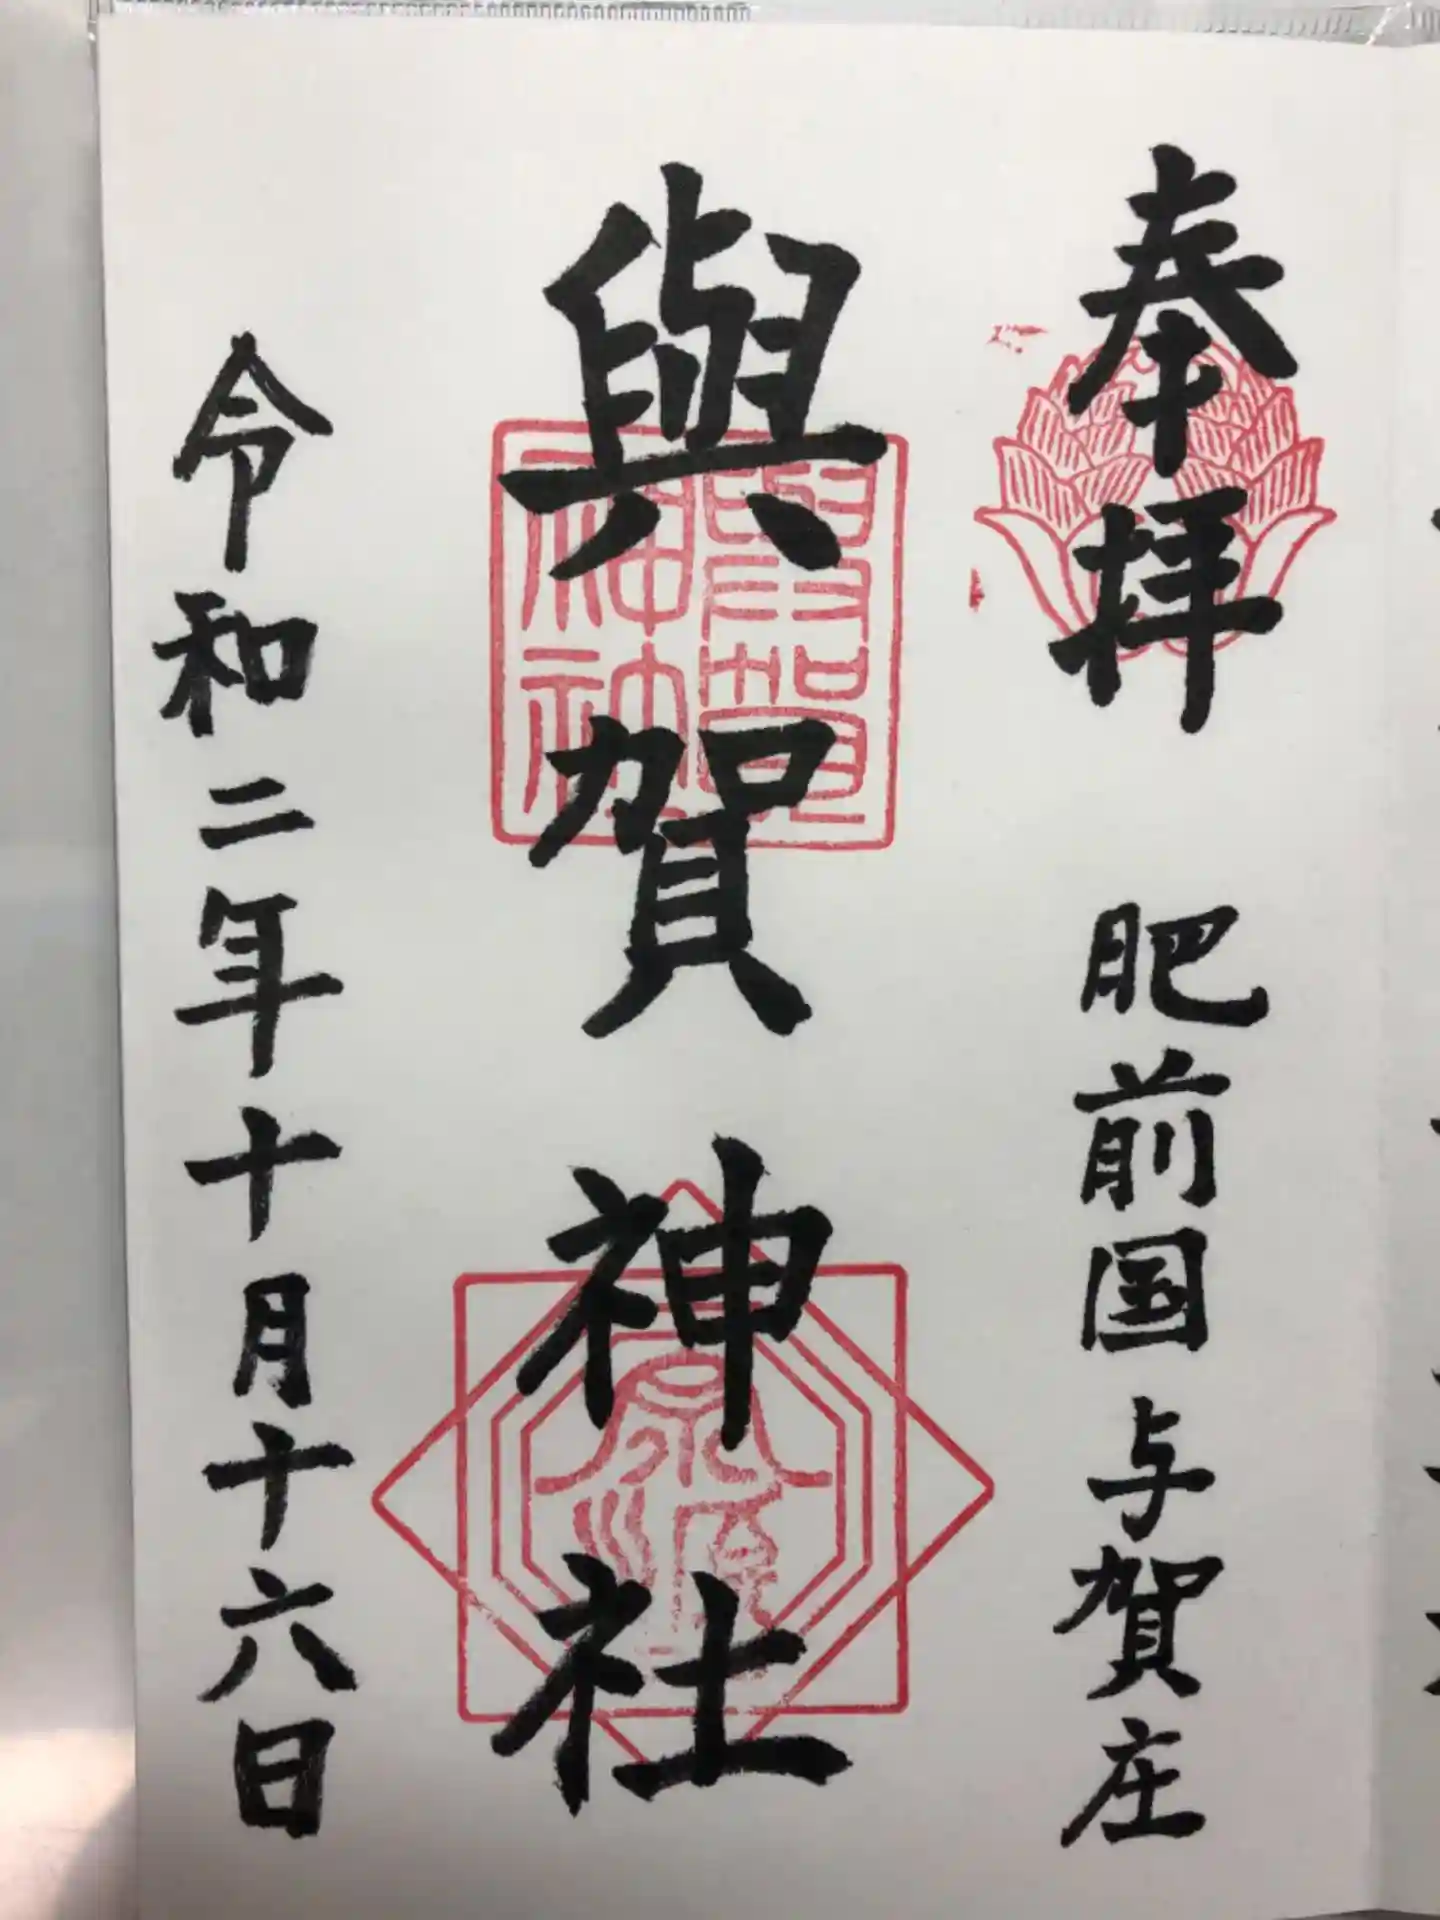 奉拝　肥前国与賀庄
與賀神社
與賀神社
令和二年十月十六日